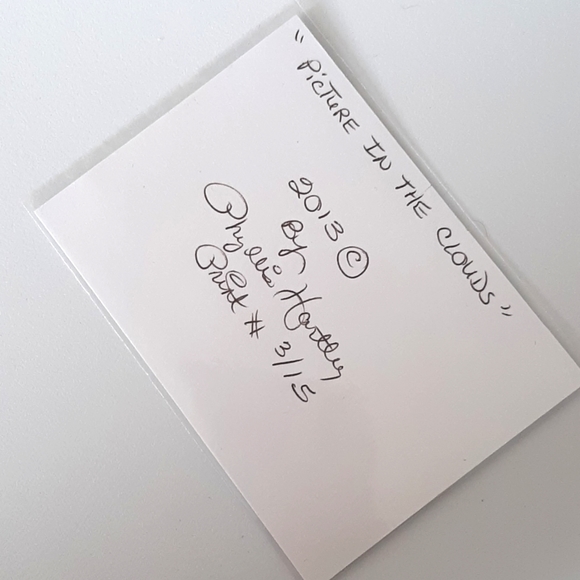 "PICTURE IN THE CLOUDS"
2013 ©
By
Phyllis Hartley
Print # 3/15